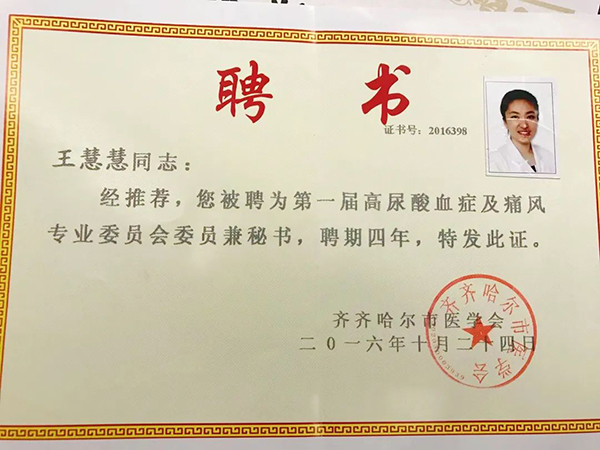 聘书
证书号：2016398
王慧慧同志：
经推荐，您被聘为第一届高尿酸血症及痛风
专业委员会委员兼秘书，聘期四年，特发此证。
齐齐哈尔市医学会
二〇一六年十月二十四日
齐齐哈尔市医学会